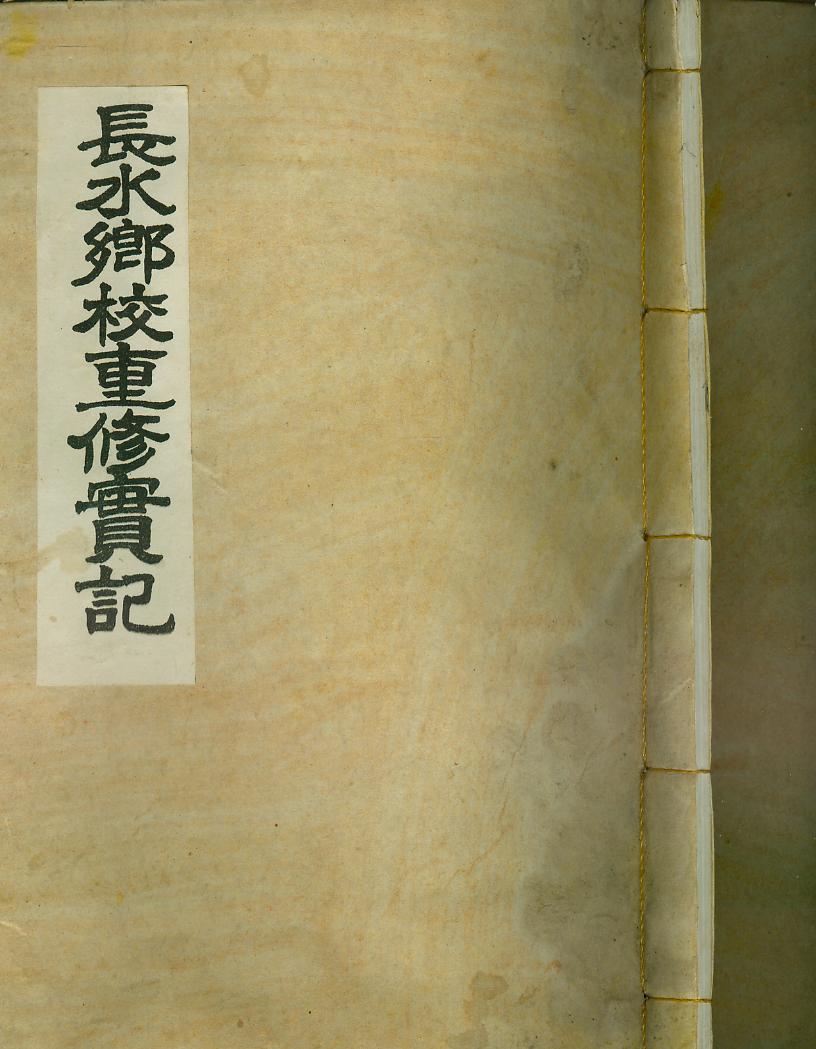 長水鄕校重修實記